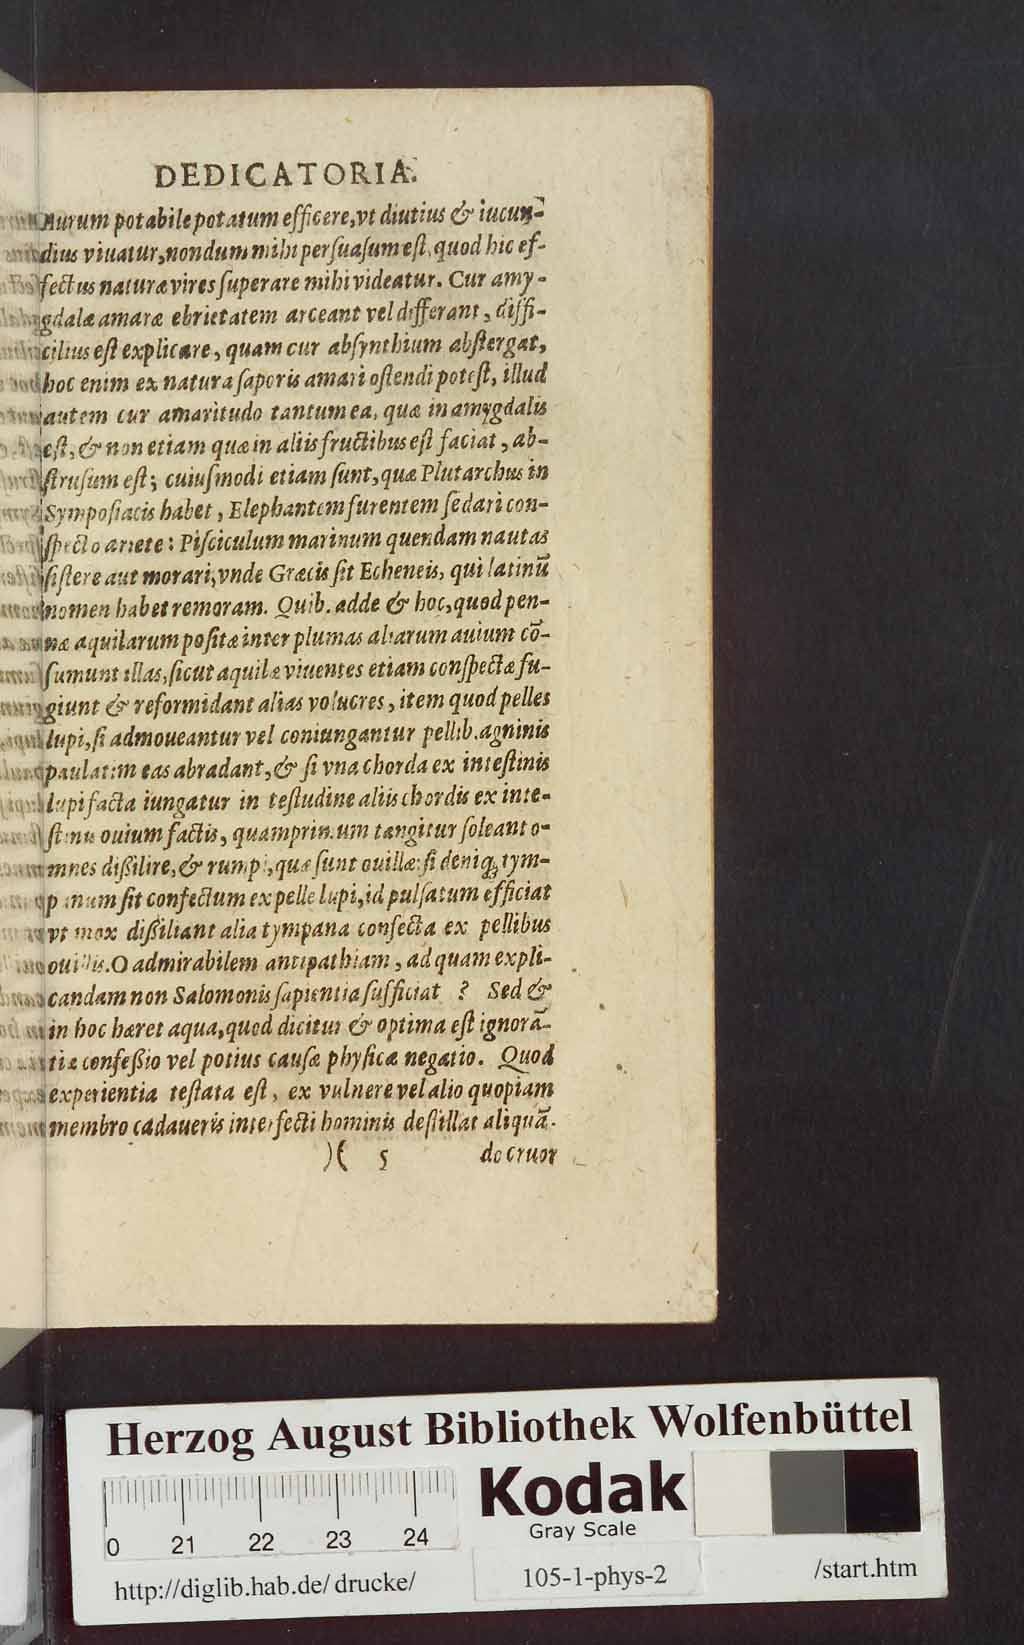 DEDICATORIA.
Aurum potabile potatum efficere, vt diutius & iucun-
dius viuatur, nondum mihi persuasum est, quod hic ef-
fectus naturæ vires superare mihi videatur. Cur amy-
gdalæ amaræ ebrietatem arceant vel differant, diffi-
cilius est explicare, quam cur absynthium abstergat,
hoc enim ex natura saporis amari ostendi potest, illud
autem cur amaritudo tantum ea, quæ in amygdalis
est, & non etiam quæ in aliis fructibus est faciat, ab-
strusum est; cuiusmodi etiam sunt, quæ Plutarchus in
Symposiacis habet, Elephantem furentem sedari con-
specto ariete: Pisciculum marinum quendam nautas
sistere aut morari, vnde Græcis sit Echeneis, qui latinū
nomen habet remoram. Quib. adde & hoc, quod pen-
næ aquilarum positæ inter plumas aliarum auium cō-
sumunt illas, sicut aquilæ viuentes etiam conspectæ fu-
giunt & reformidant alias volucres, item quod pelles
lupi, si admoueantur vel coniungantur pellib. agninis
paulatim eas abradant, & si vna chorda ex intestinis
lupi facta iungatur in testudine aliis chordis ex inte-
stinis ouium factis, quamprimum tangitur soleant o-
mnes dißilire, & rumpi, quæ sunt ouillæ: si deniq; tym-
panum sit confectum ex pelle lupi, id pulsatum efficiat
vt mox dißiliant alia tympana confecta ex pellibus
ouillis. O admirabilem antipathiam, ad quam expli-
candam non Salomonis sapientia sufficiat ? Sed &
in hoc hæret aqua, quod dicitur & optima est ignorā-
tiæ confeßio vel potius causæ physicæ negatio. Quod
experientia testata est, ex vulnere vel alio quopiam
membro cadaueris interfecti hominis destillat aliquā-
)( 5 do cruor
Herzog August Bibliothek Wolfenbüttel
0 21 22 23 24
Kodak
Gray Scale
http://diglib.hab.de/drucke/ 105-1-phys-2 /start.htm